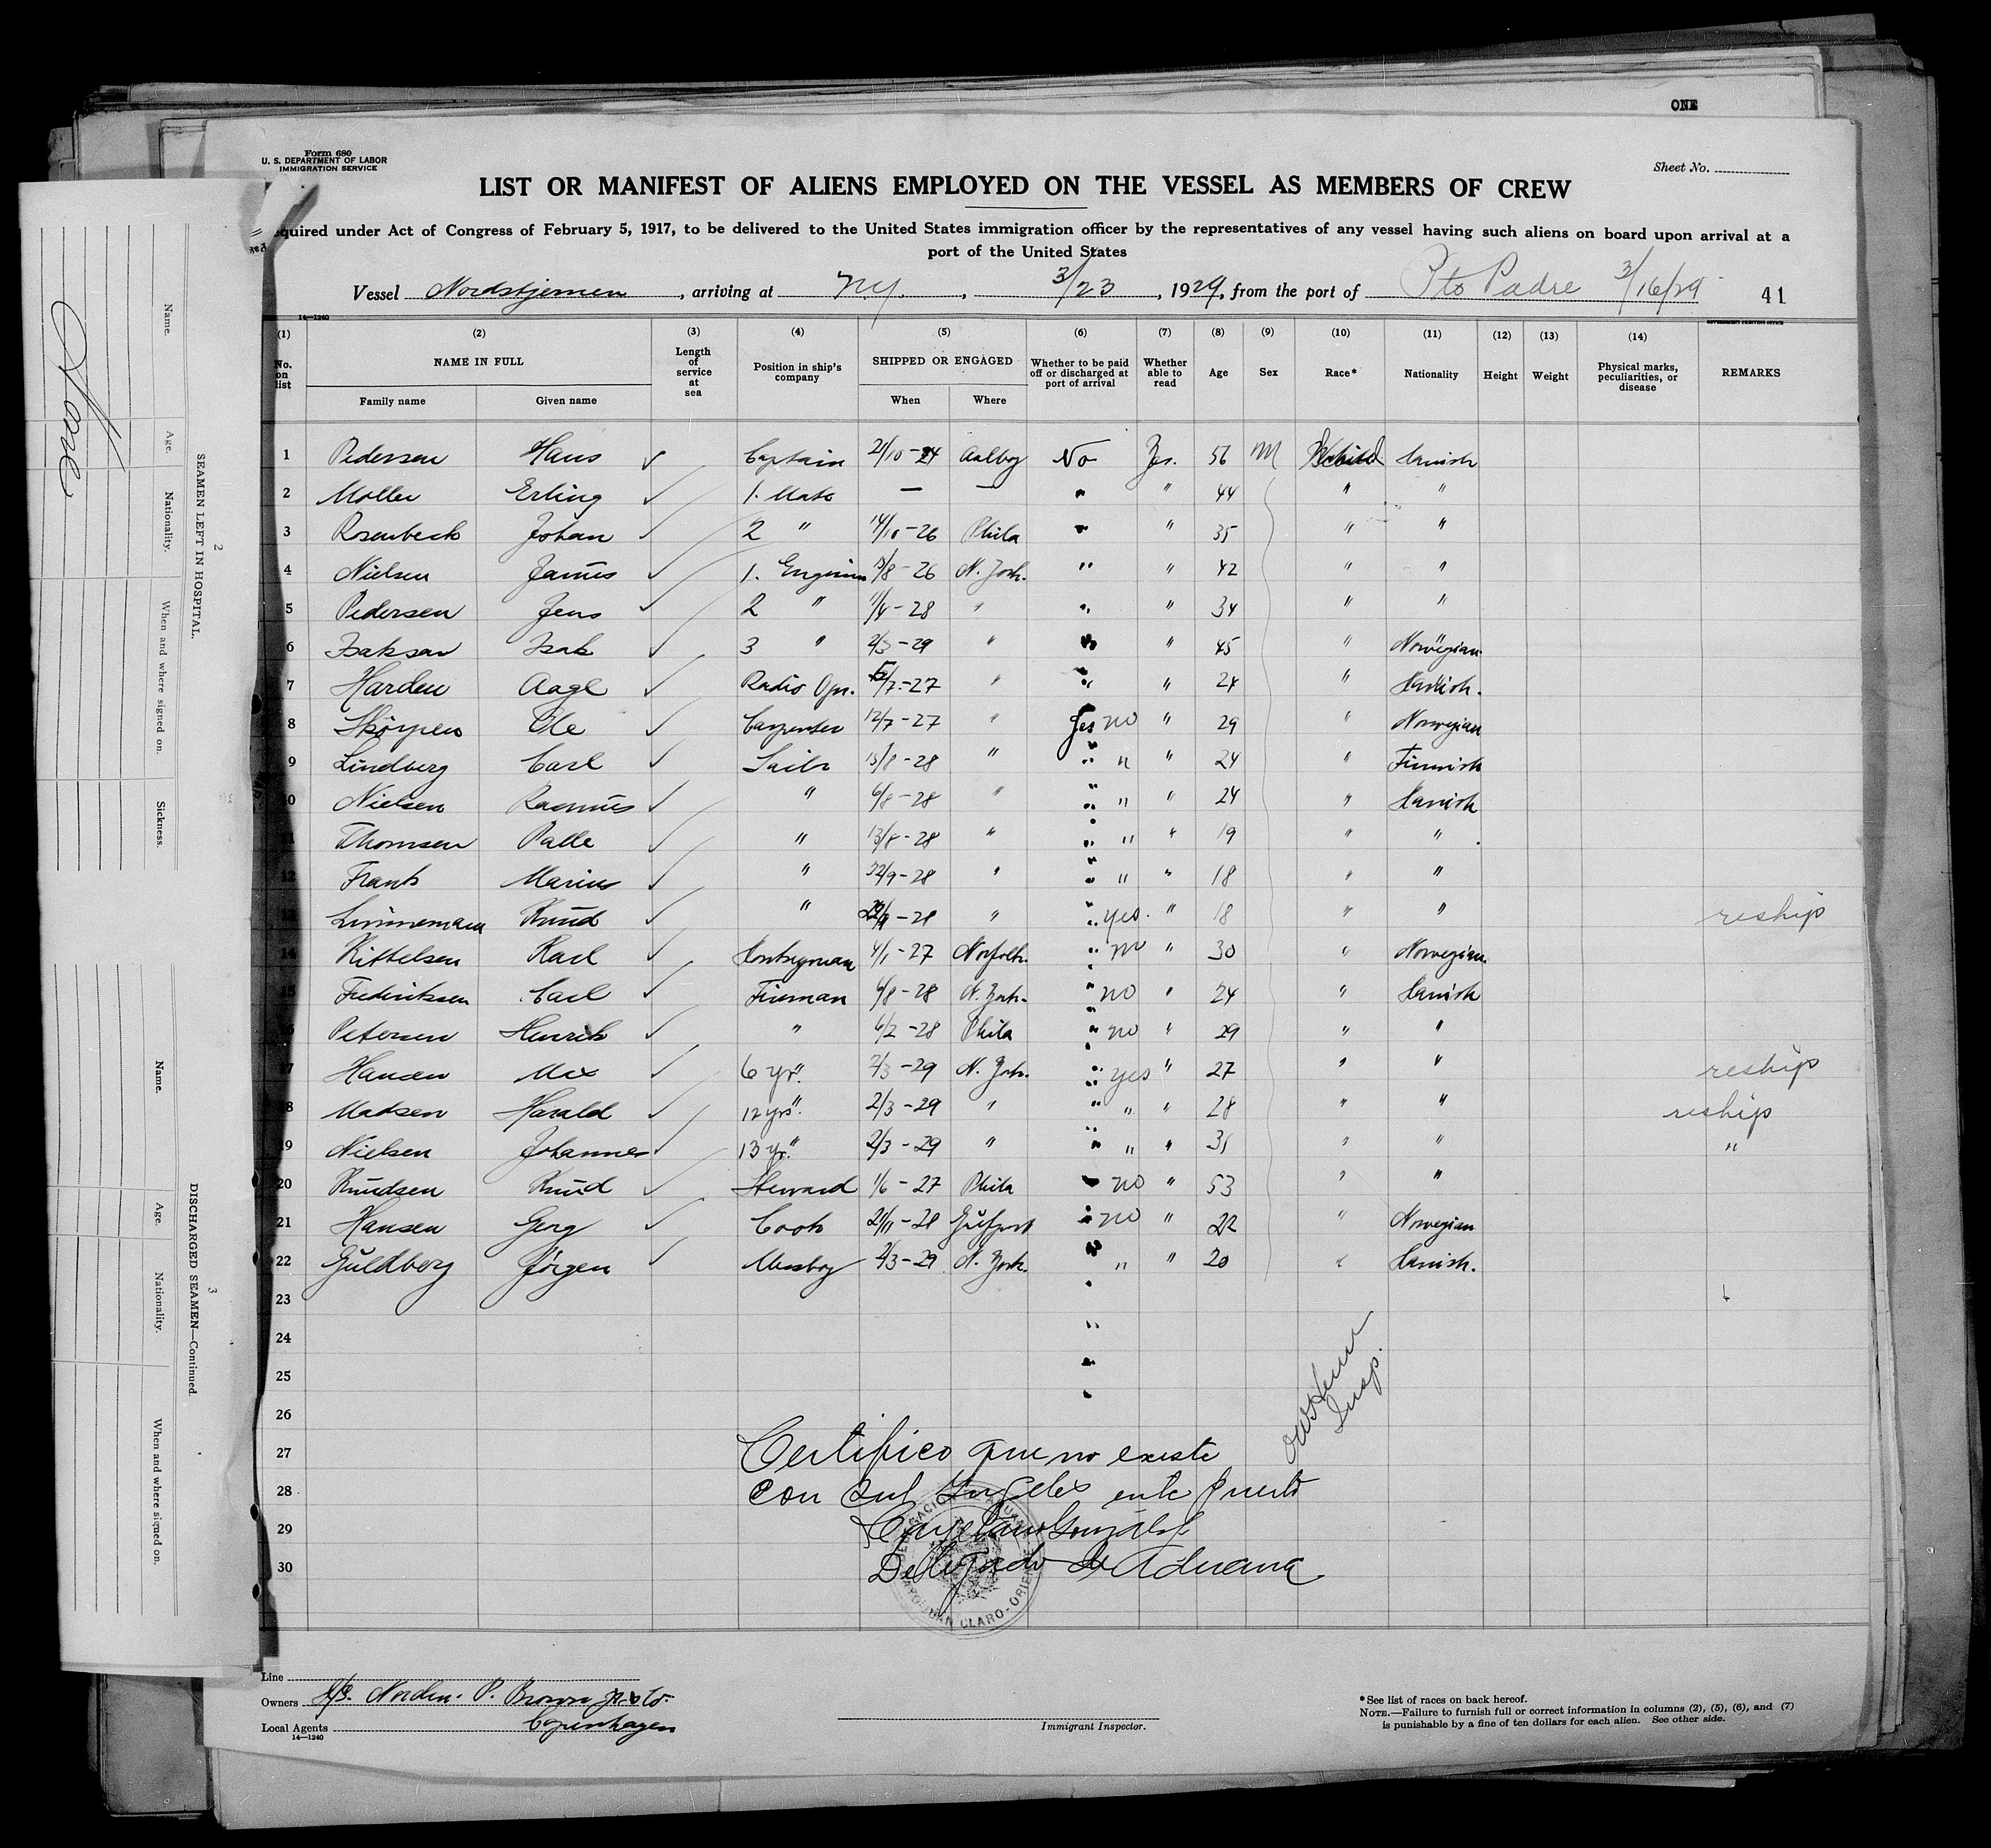 ONE
Form 680
U. S. DEPARTMENT OF LABOR
IMMIGRATION SERVICE
Sheet No.
LIST OR MANIFEST OF ALIENS EMPLOYED ON THE VESSEL AS MEMBERS OF CREW
equired under Act of Congress of February 5, 1917, to be delivered to the United States immigration officer by the representatives of any vessel having such aliens on board upon arrival at a
port of the United States
Vessel Nordstjernen, arriving at N.Y., 3/23, 1929, from the port of Pto Padre 3/16/29 41
14—1240
GOVERNMENT PRINTING OFFICE
(1) (2) (3) (4) (5) (6) (7) (8) (9) (10) (11) (12) (13) (14)
No. on list NAME IN FULL Length of service at sea Position in ship's company SHIPPED OR ENGAGED Whether to be paid off or discharged at port of arrival Whether able to read Age Sex Race* Nationality Height Weight Physical marks, peculiarities, or disease REMARKS
Family name Given name When Where
1 Pedersen Hans ✓ Captain 21/10-24 Aalborg No Yes. 56 M Danish
2 Moller Erling ✓ 1. Mate — — " " 44 " "
3 Rosenbeck Johan ✓ 2 " 14/10-26 Phila " " 35 " "
4 Nielsen Janus ✓ 1. Engineer 13/8-26 N. York. " " 42 " "
5 Pedersen Jens ✓ 2 " 1/4-28 " " " 34 " "
6 Isaksen Isak ✓ 3 " 2/3-29 " " " 45 " Norwegian
7 Harden Aage ✓ Radio Opr. 5/7-27 " " " 24 " Danish.
8 Skörpen Ole ✓ Carpenter 12/7-27 " Yes no " 29 " Norwegian
9 Lindberg Carl ✓ Sailr 13/8-28 " " " " 24 " Finnish
10 Nielsen Rasmus ✓ " 6/8-28 " " " " 24 " Danish
11 Thomsen Palle ✓ " 13/8-28 " " " " 19 " "
12 Frank Marius ✓ " 22/9-28 " " " " 18 " "
13 Linnemann Knud ✓ " -28 " " yes. " 18 " " reship
14 Kittelsen Karl ✓ Donkeyman 4/1-27 Norfolk. " no " 30 " Norwegian.
15 Frederiksen Carl ✓ Fireman 6/8-28 N. York. " no " 24 " Danish
16 Petersen Henrik ✓ " 6/2-28 Phila " no " 29 " "
17 Hansen Max ✓ 6 yr. " 2/3-29 N. York. " yes " 27 " " reship
18 Madsen Harald ✓ 12 yrs. " 2/3-29 " " " " 28 " " reship
19 Nielsen Johannes ✓ 13 yr. " 2/3-29 " " " " 31 " " "
20 Knudsen Knud ✓ Steward 1/6-27 Phila no " 53 " "
21 Hansen Georg ✓ Cook 21/11-28 Gulfport no " 22 " Norwegian
22 Guldberg Jörgen ✓ Messboy 2/3-29 N. York. " " " 20 " Danish.
23
24
25
26
27
28
29
30
Insp.
Certifico que no existe
Consul Ingles en este puerto
Cayetano González
Delegado de Aduana
CLARO-ORIENTE
Line
Owners D/S. Norden. P. Brown jr. & Co.
Local Agents Copenhagen
14—1240
Immigrant Inspector.
*See list of races on back hereof.
NOTE.—Failure to furnish full or correct information in columns (2), (5), (6), and (7)
is punishable by a fine of ten dollars for each alien. See other side.
2
SEAMEN LEFT IN HOSPITAL.
Name. Age. Nationality. When and where signed on. Sickness.
None
3
DISCHARGED SEAMEN—Continued.
Name. Age. Nationality. When and where signed on.